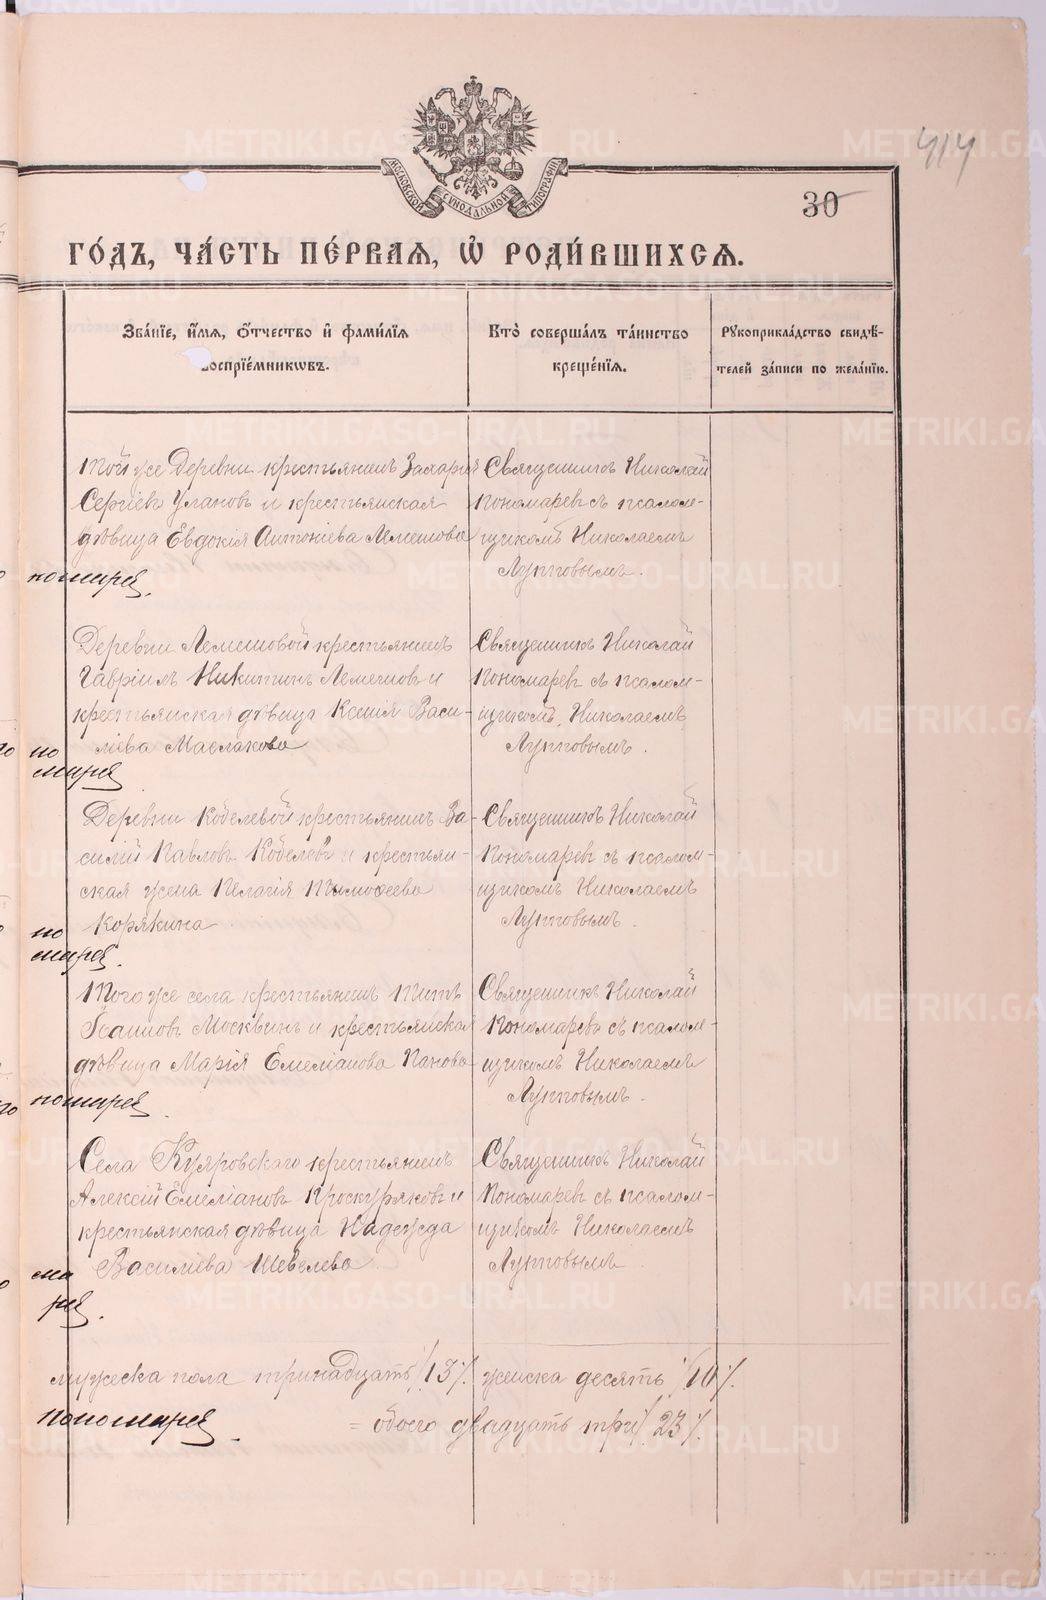 414
МОСКОВСКОЙ СѴНОДАЛЬНОЙ ТИПОГРАФІИ
30
ГО́ДЪ, ЧА́СТЬ ПЕ́РВАЯ, Ѽ РОДИ́ВШИХСЯ.
Зва́нїе, и҆́мѧ, ѻ҆́тчество и҆ фами́лїѧ
воспрїе́мникѡвъ.
Кто̀ соверша́лъ та́инство
креще́нїѧ.
Рꙋкоприкла́дство свидѣ́-
телей за́писи по жела́нїю.
Той же Деревни крестьянинъ Захарія
Сергіевъ Улановъ и крестьянская
дѣвица Евдокія Антоніева Лемешова
Священникъ Николай
Пономаревъ съ псалом-
щикомъ Николаемъ
Лупповымъ.
Деревни Лемешовой крестьянинъ
Гавріилъ Никитинъ Лемешовъ и
крестьянская дѣвица Ксенія Васи-
ліева Маслакова
Священникъ Николай
Пономаревъ съ псалом-
щикомъ Николаемъ
Лупповымъ.
Деревни Кобелевой крестьянинъ Ва-
силій Павловъ Кобелевъ и крестьян-
ская жена Пелагія Тимофеева
Корякина
Священникъ Николай
Пономаревъ съ псалом-
щикомъ Николаемъ
Лупповымъ.
Того же села крестьянинъ Титъ
Москвинъ и крестьянская
дѣвица Марія Емеліанова Панова
Священникъ Николай
Пономаревъ съ псалом-
щикомъ Николаемъ
Лупповымъ.
Села Куяровскаго крестьянинъ
Алексій Емеліановъ Проскуряковъ и
крестьянская дѣвица Надежда
Василіева Шевелева
Священникъ Николай
Пономаревъ съ псалом-
щикомъ Николаемъ
Лупповымъ
мужеска пола тринадцать /13/. женска десять /10/.
= обоего двадцать три /23/.
METRIKI.GASO-URAL.RU